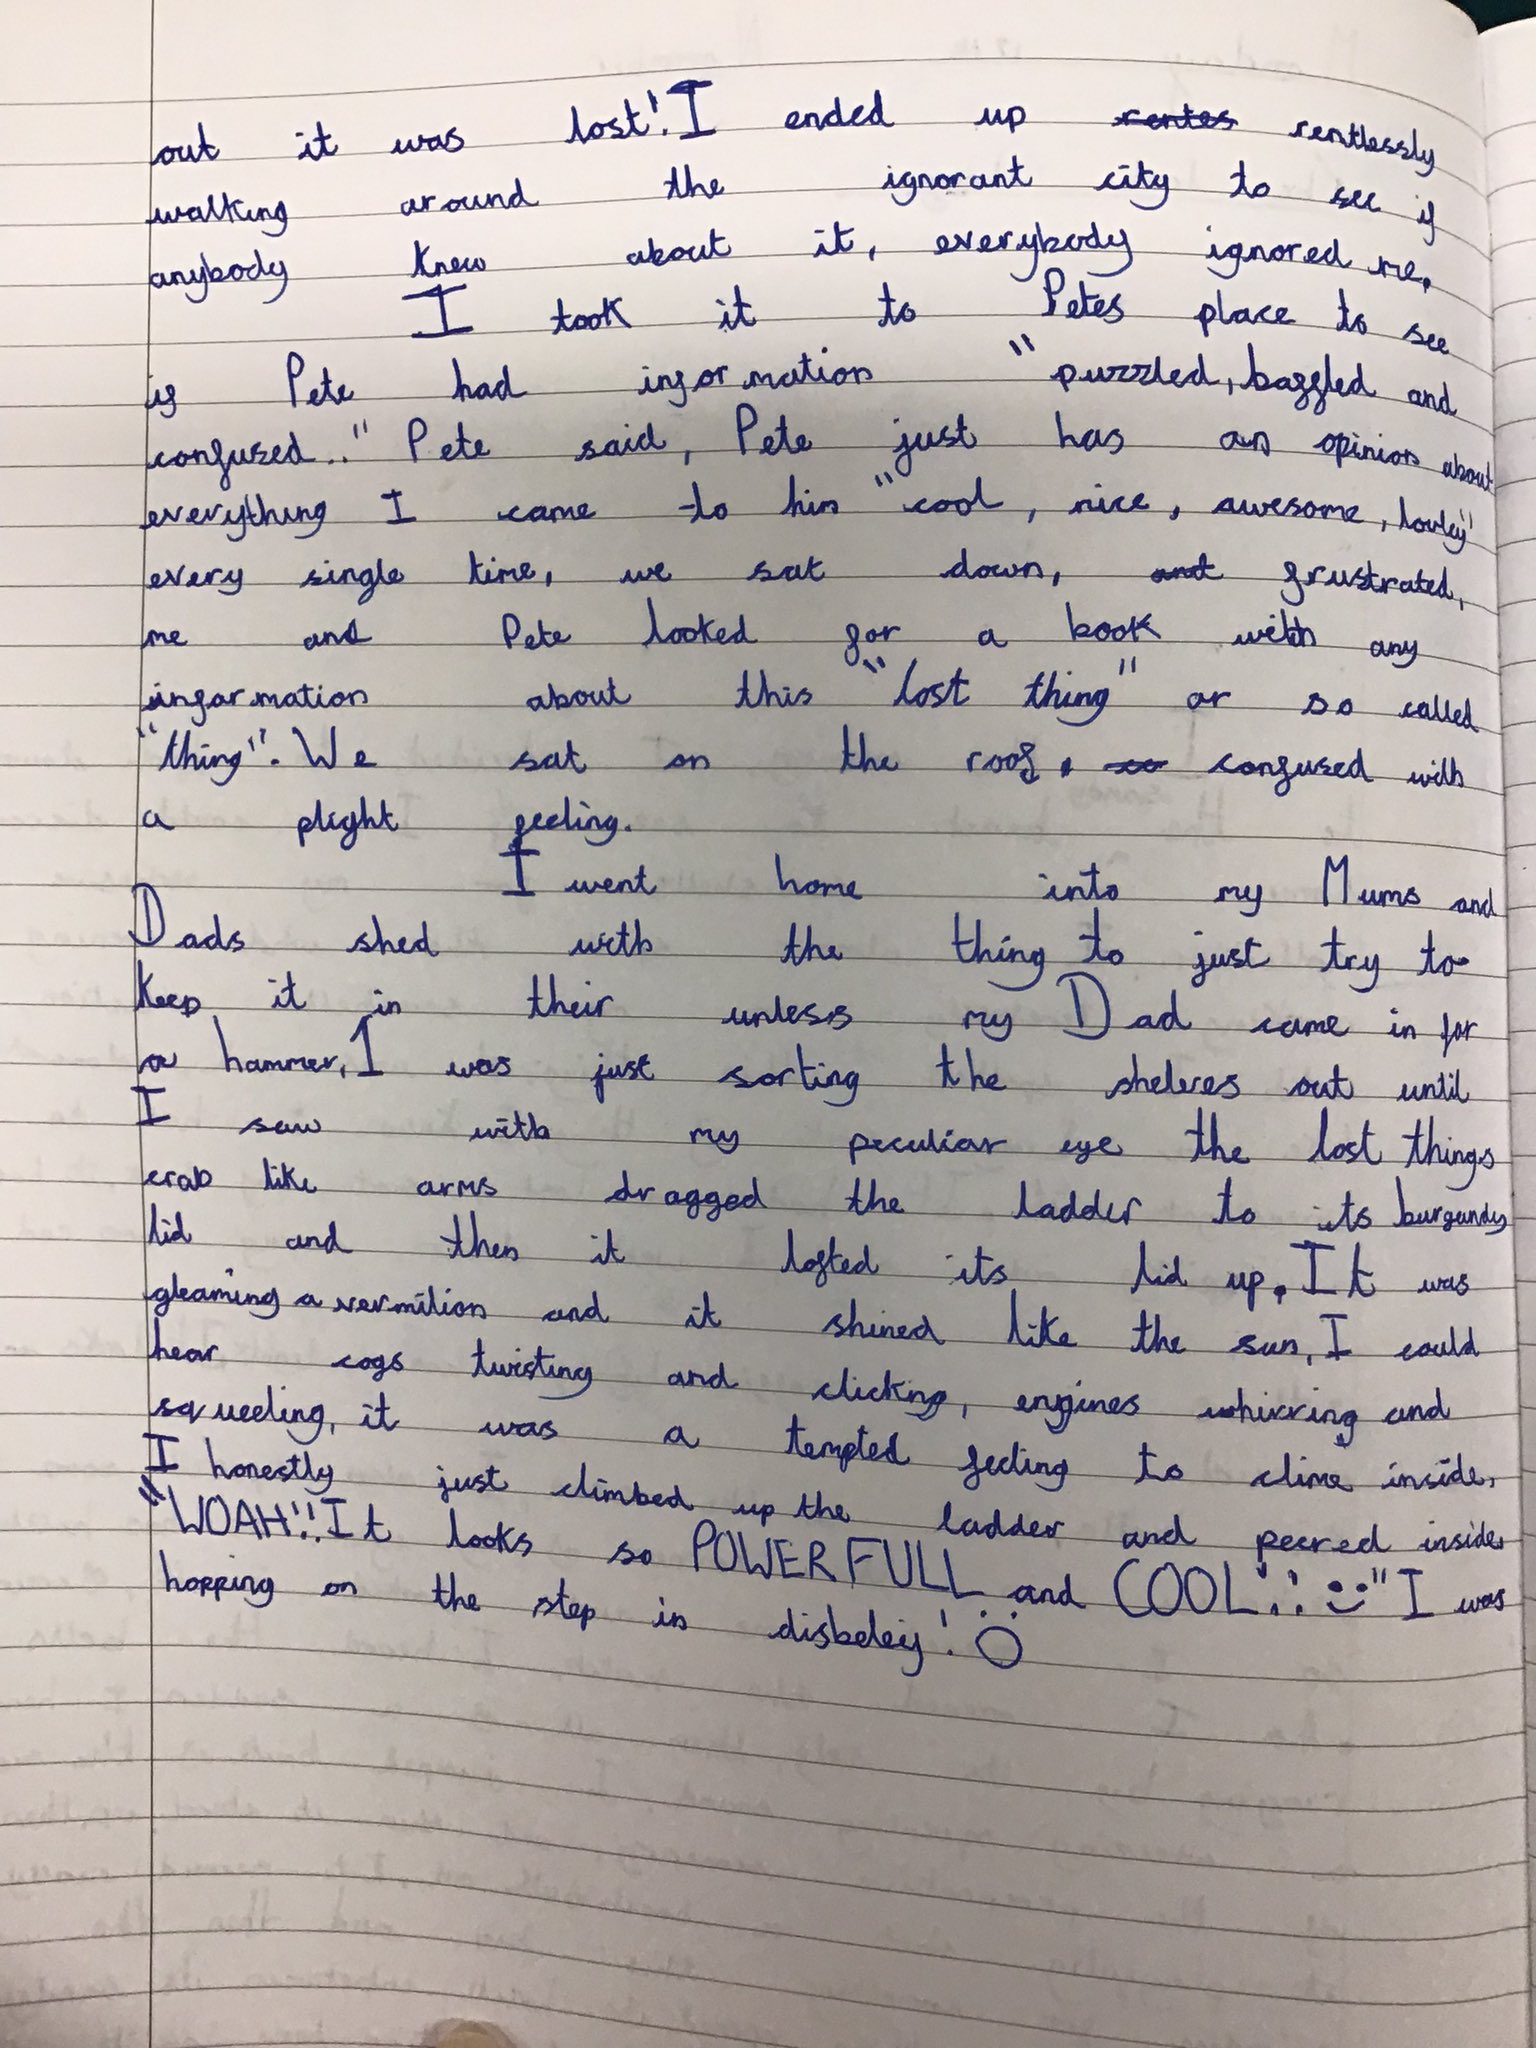 out it was lost! I ended up rentes rentlessly
walking around the ignorant city to see if
anybody knew about it, everybody ignored me.
I took it to Petes place to see
if Pete had information "puzzled, baffled and
confused.." Pete said, Pete just has an opinion about
everything I came to him "cool, nice, awesome, lovley"
every single time, we sat down, and frustrated,
me and Pete looked for a book with any
information about this "lost thing" or so called
"thing". We sat on the roof, so confused with
a plight feeling.
I went home into my Mums and
Dads shed with the thing to just try to
keep it in their unless my Dad came in for
a hammer, I was just sorting the shelves out until
I saw with my peculiar eye the lost things
crab like arms dragged the ladder to its burgundy
lid and then it lofted its lid up. It was
gleaming a vermilion and it shined like the sun, I could
hear cogs twisting and clicking, engines whirring and
squeeling, it was a tempted feeling to clime inside.
I honestly just climbed up the ladder and peered inside.
"WOAH"! It looks so POWERFULL and COOL!! :)" I was
hopping on the step in disbeleif! :O